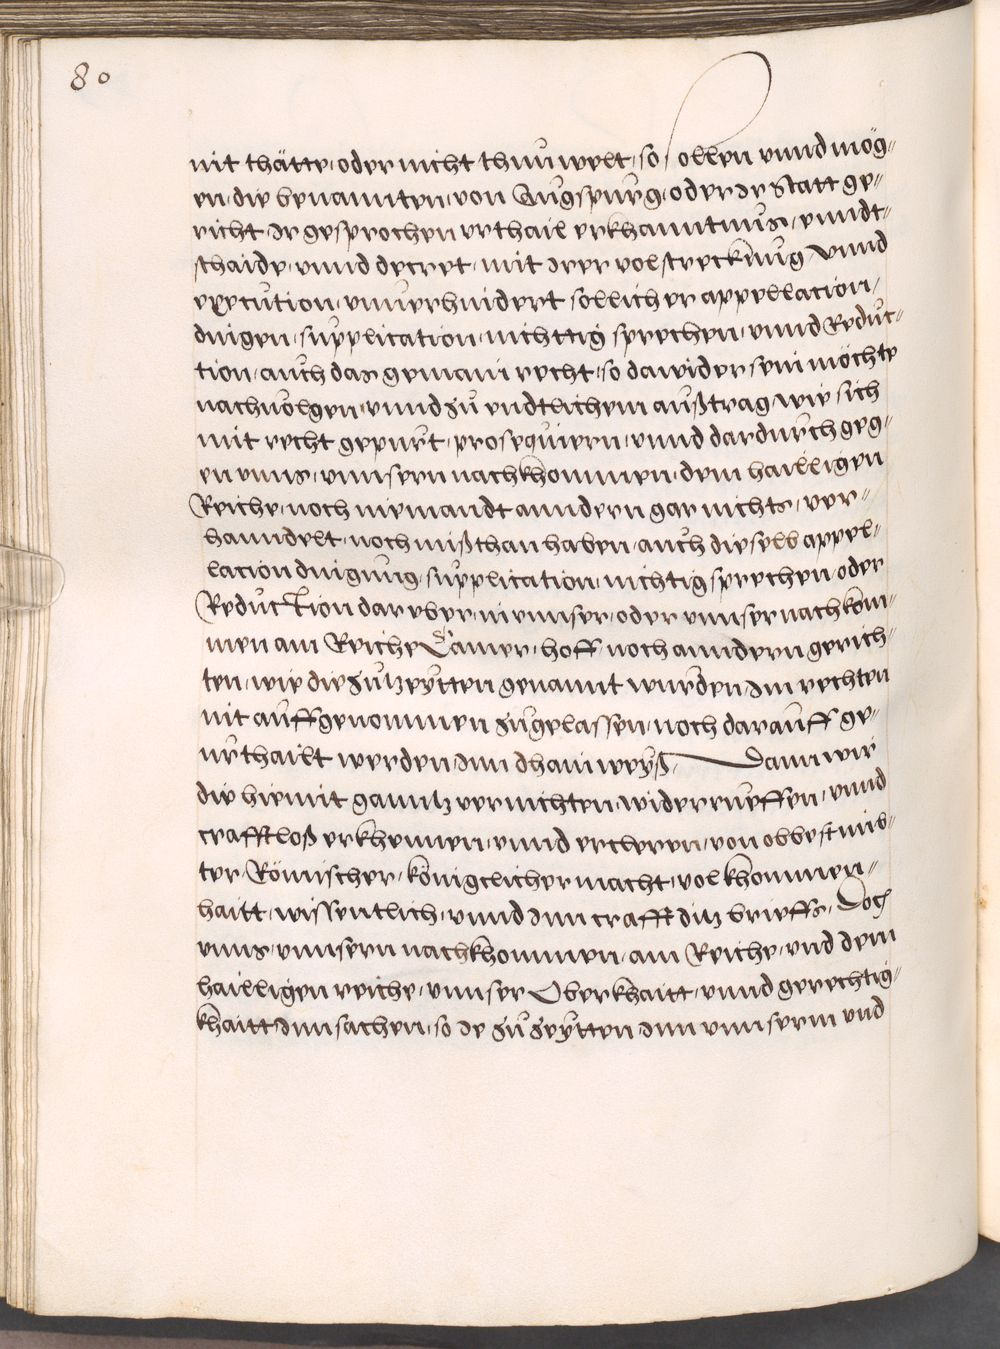 80
nit thätte, oder nicht thun welt, so sollen vnnd mög-
en, die benannten, von Augspurg, oder Jr Statt ge-
richt, Jr gesprochen vrthail erkhanntnus, vnndt-
schaide, vnnd decret, mit Jrer volstreckung vnnd
execution, vnuerhindert sollicher appellacion,
dingen, supplication, nichttig sprechen, vnnd Reduc-
tion, auch das gemain recht, so dawider sein möchte
nachuolgen, vnnd zu endtlichem außtrag, wie sich
mit recht gepurt, prosequiern, vnnd dardurch geg-
en vnns, vnnsern nachkhommen, dem hailligen
Reiche, noch niemandt anndern gar nichts, ver-
hanndelt, noch mißthan haben, auch dieselb appel-
lacion dingung, supplication, nichtig sprechen, oder
Reduction darvber, in vnnser, oder vnnser nachkom-
men am Reiche Camer, hoff, noch anndern gerich-
ten, wie die zutzeytten genannt wurden, Jm rechten
nit auffgenommen zugelassen, noch darauff ge-
urthailt werden, Jnn dhain weyß, Dann wir
die hiemit ganntz vernichten, widerrueffen, vnnd
crafftloß erkhennen, vnnd ercleren, von obbestimb-
ter Römischer, königclicher macht, volkhommen-
haitt, wissentlich, vnnd Jnn crafft ditz brieffs, Doch
vnns, vnnsern nachkhommen, am Reiche, vnd dem
hailligen reiche, vnnser Oberkhaitt, vnnd gerechtig-
khaitt Jnn sachen, so Je zu Zeytten Jnn vnnserm vnd